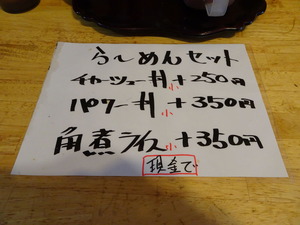 らーめんセット
チャーシュー丼小+250円
パワー丼小+350円
角煮ライス小+350円
現金で